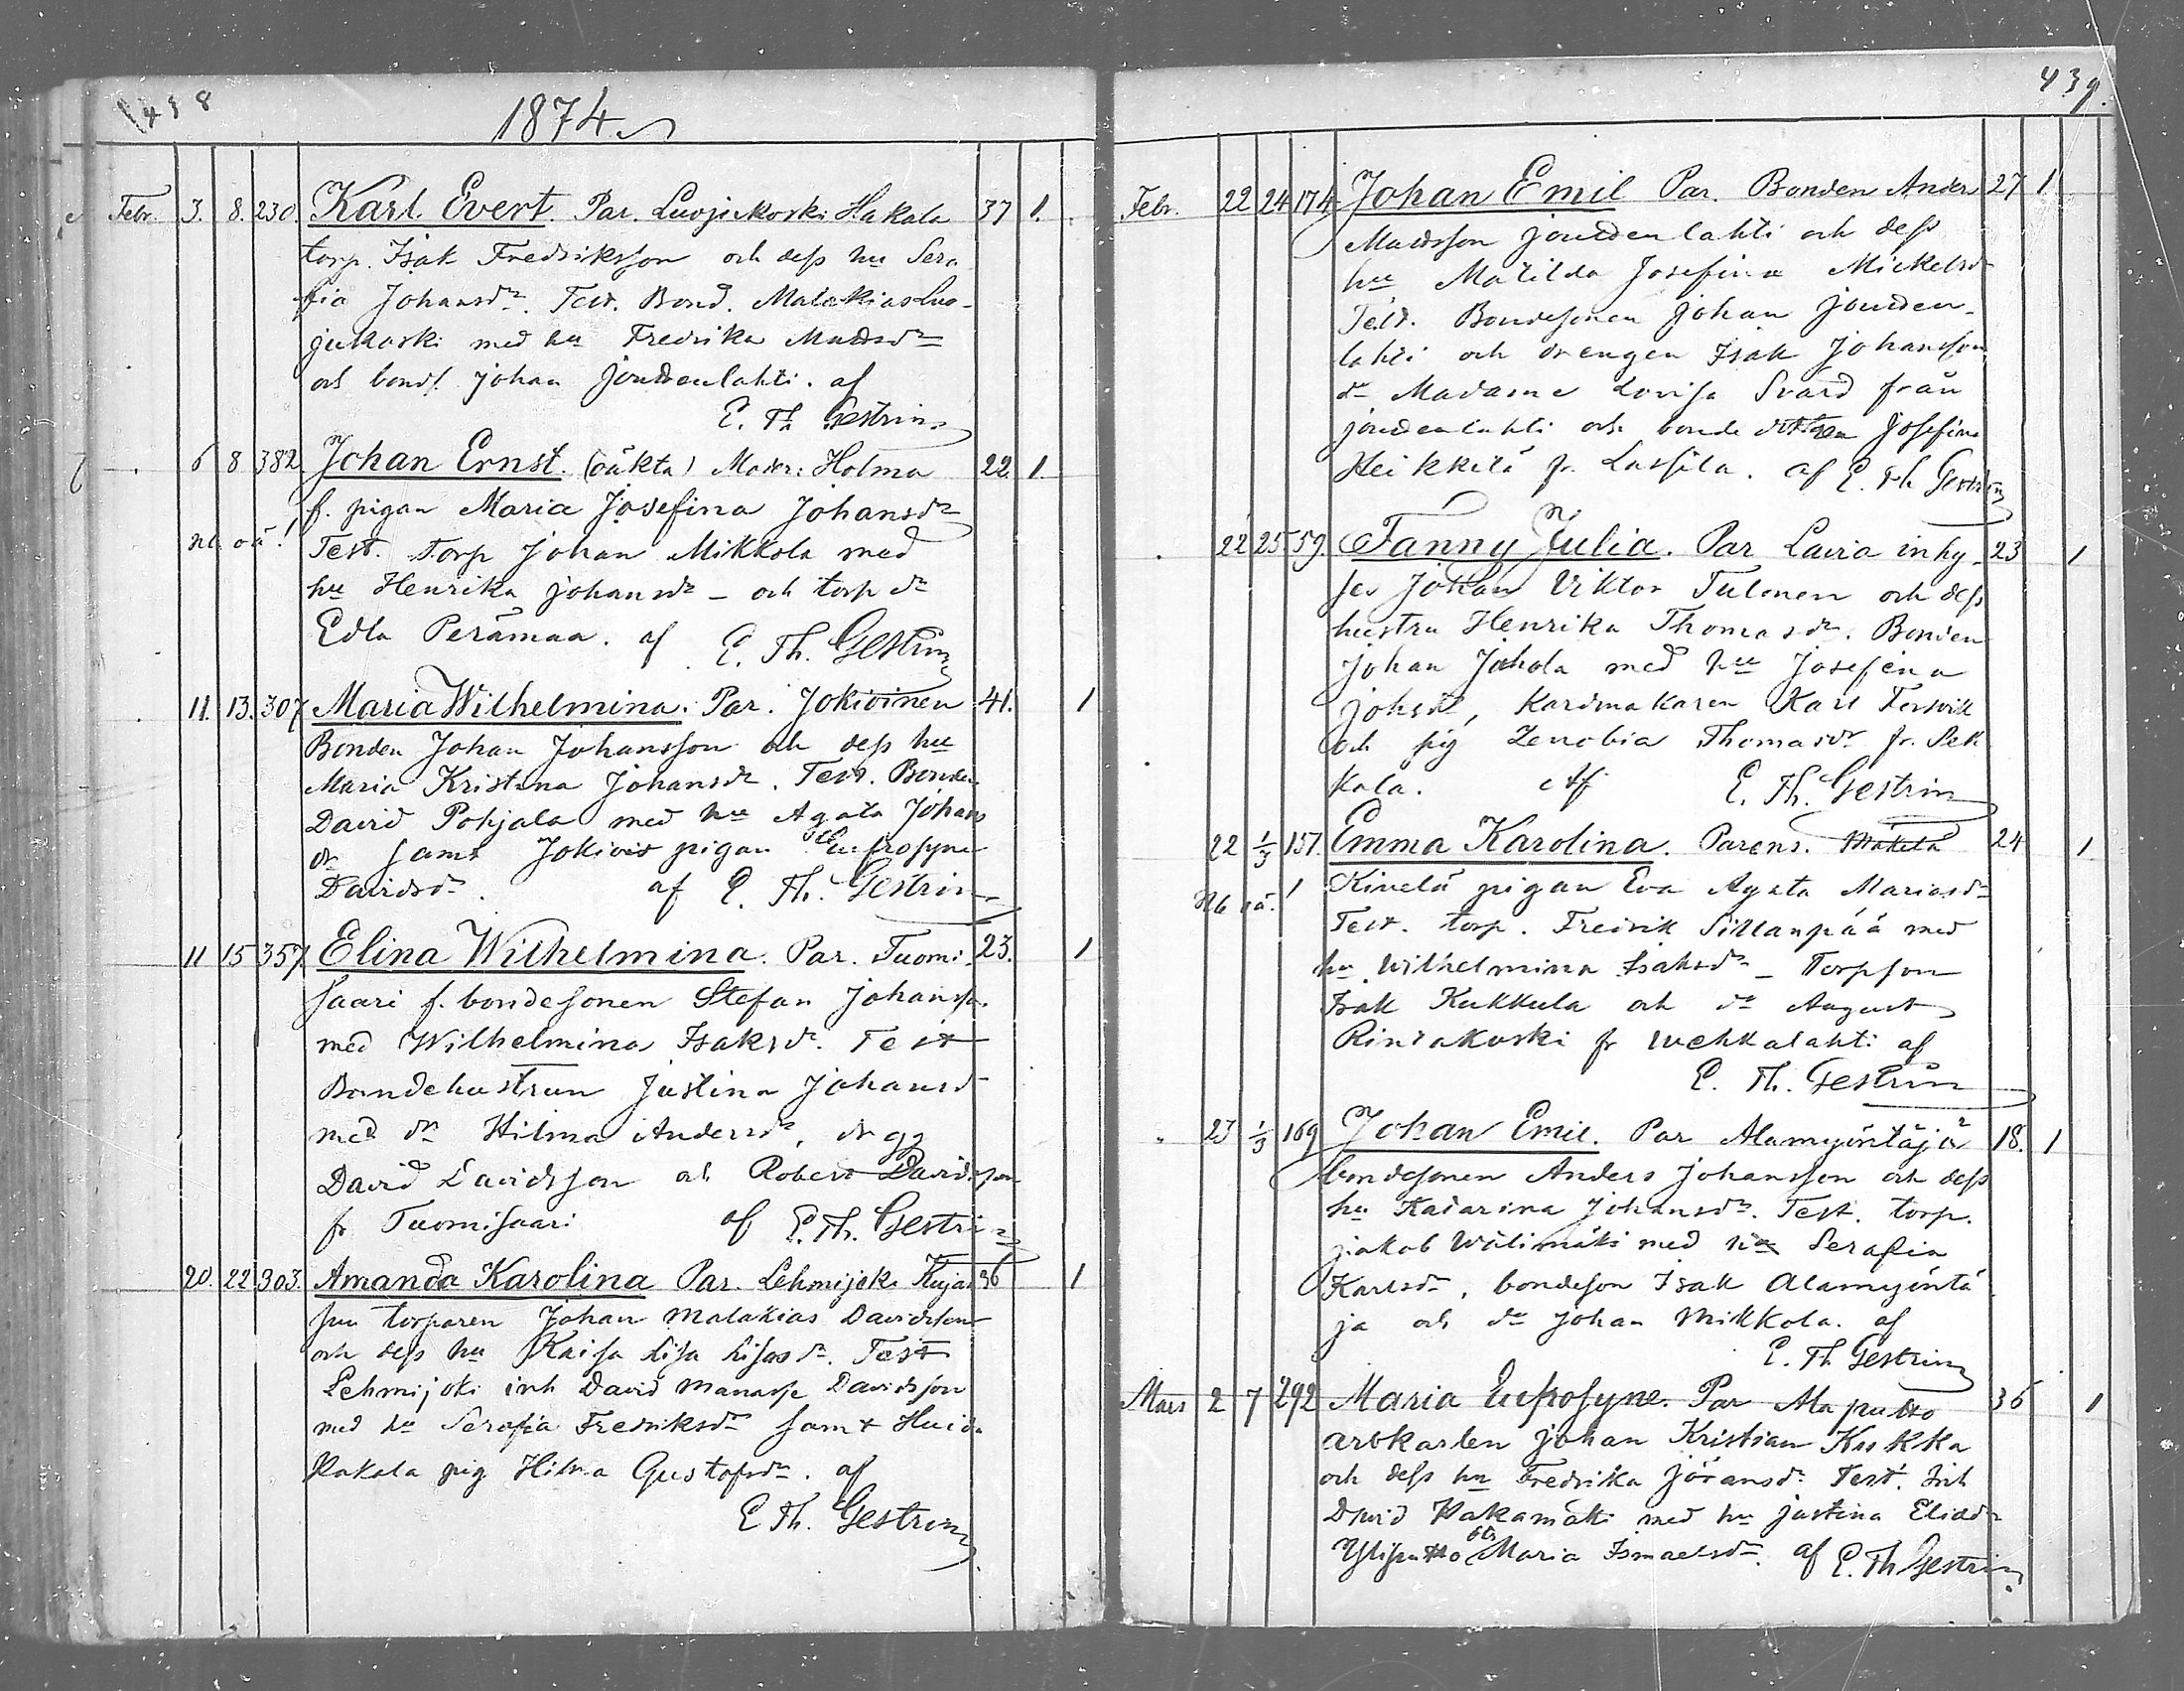 438
1874
Febr. 3. 8. 230. Karl Evert. Par. Luojukoski Hakala 37 1.
torp. Isak Fredriksson och dess hu Sera
fia Johansdr. Test. Bond. Malakias Luo-
jukoski med hu Fredrika Mattsdr
och bonds. Johan Jouttenlahti. af
E. Th Gestrin
6 8 382 Johan Ernst. (oäkta) Moder: Holma 22. 1.
f. pigan Maria Josefina Johansdr
Nb. oä! Test. Torp Johan Mikkola med
hu Henrika Johansdr - och torp dr
Edla Perämaa. af E. Th. Gestrin
11. 13. 307 Maria Wilhelmina. Par. Jokioinen 41. 1
Bonden Johan Johansson och dess hu
Maria Kristina Johansdr. Test. Bonden
David Pohjala med hu Agata Johans
dr samt pigan Eufrosyne
Davidsdr. af E. Th. Gestrin
11 15 357 Elina Wilhelmina. Par. Tuomi- 23. 1
saari f. bondesonen Stefan Johanss.
med Wilhelmina Isaksdr. Test
Bondehustrun Justina Johansd
med dr Hilma Andersdr, drgg
David Davidsson och Robert Davidsson
fr Tuomisaari af E. Th. Gestrin
20. 22 303. Amanda Karolina Par. Lehmijoki Kujan 36 1
suu torparen Johan Malakias Davidsson
och dess hu Kaisa Lisa Lisasdr. Test
Lehmijoki inh David Manasse Davidsson
med hu Serafia Fredriksdr samt
Kakala pig Hilma Gustafsdr. af
E Th. Gestrin
439.
Febr. 22 24 174 Johan Emil Par. Bonden Anders 27 1
Mattsson Jouttenlahti och dess
hu Matilda Josefina Mickelsd
Test. Bondesonen Johan Joutten-
lahti och drengen Isak Johansson
dr Madame Lovisa Svärd från
Jouttenlahti och bonde dottren Josefina
Heikkilä fr. Lassila. af E. Th Gestrin
22 25 59. Fanny Julia. Par Lauria inhy- 23 1
ses Johan Viktor Tulonen och dess
hustru Henrika Thomasdr. Bonden
Johan Jahola med hu Josefina
Johsdr, Kardmakaren Karl
och pig Zenobia Thomasdr fr. Pek
kala. af E. Th. Gestrin
22 1/3 157. Emma Karolina. Parens. Mäkelä 24 1
Nb oä! Kivelä pigan Eva Agata Mariasdr
Test. torp. Fredrik Sillanpää med
hu Wilhelmina Isaksdr - Torpson
Isak Kukkula och dr August
Rintakoski fr Wehkalahti af
E. Th. Gestrin
23 1/3 169 Johan Emil. Par Alamyöntäjä 18. 1
bondesonen Anders Johansson och dess
hu Katarina Johansdr. Test. torp.
Jakob Wälimäki med hu Serafia
Karlsdr, bondeson Isak Alamyöntä
jä och dr Johan Mikkola. af
E. Th Gestrin
Mars 2 7 292 Maria Eufrosyne. Par Alaputto 36 1
arbkarlen Johan Kristian Kukka
och dess hu Fredrika Göransdr. Test. Inh
David Kakamäki med hu Justina Eliadr
Yliputto dtr Maria Ismaelsdr. af E. Th Gestrin